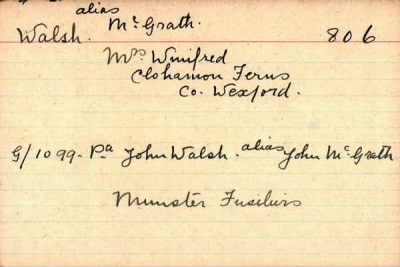 alias
Walsh. McGrath. 806
Mrs Winifred
Clohamon Ferns
Co. Wexford.
G/1099- Pa John Walsh. alias John McGrath
Munster Fusiliers